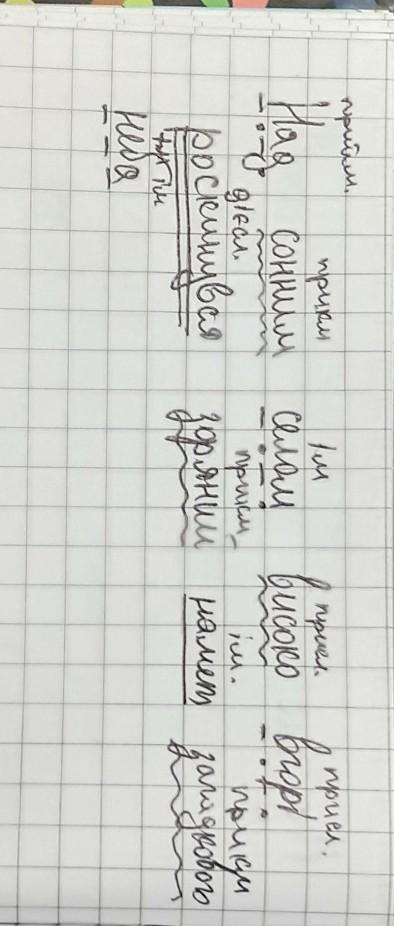 прийм. прикм ім присл. присл.
Над сонним селом високо вгорі
дієсл. прикм ім. прикм
роскинувся зоряний намет загадкового
ім
неба